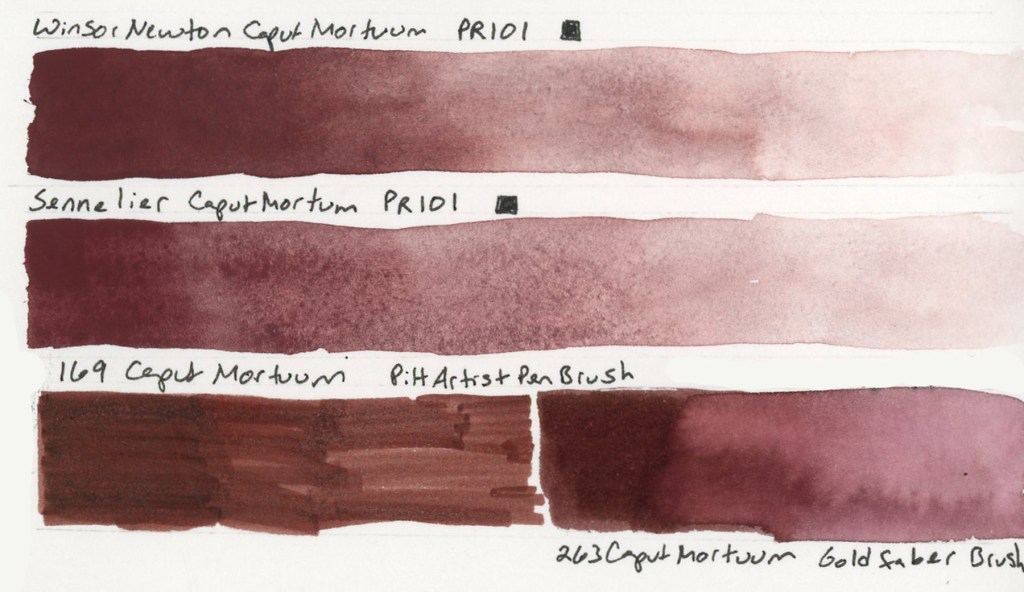 Winsor Newton Caput Mortuum PR101
Sennelier Caput Mortum PR101
169 Caput Mortuum Pitt Artist Pen Brush
263 Caput Mortuum Goldfaber Brush